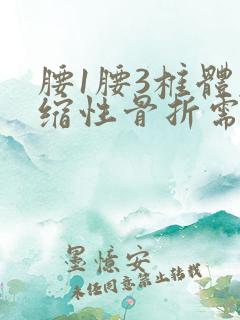 腰1腰3椎體
缩性骨折需
墨憶安
未经同意禁止转载